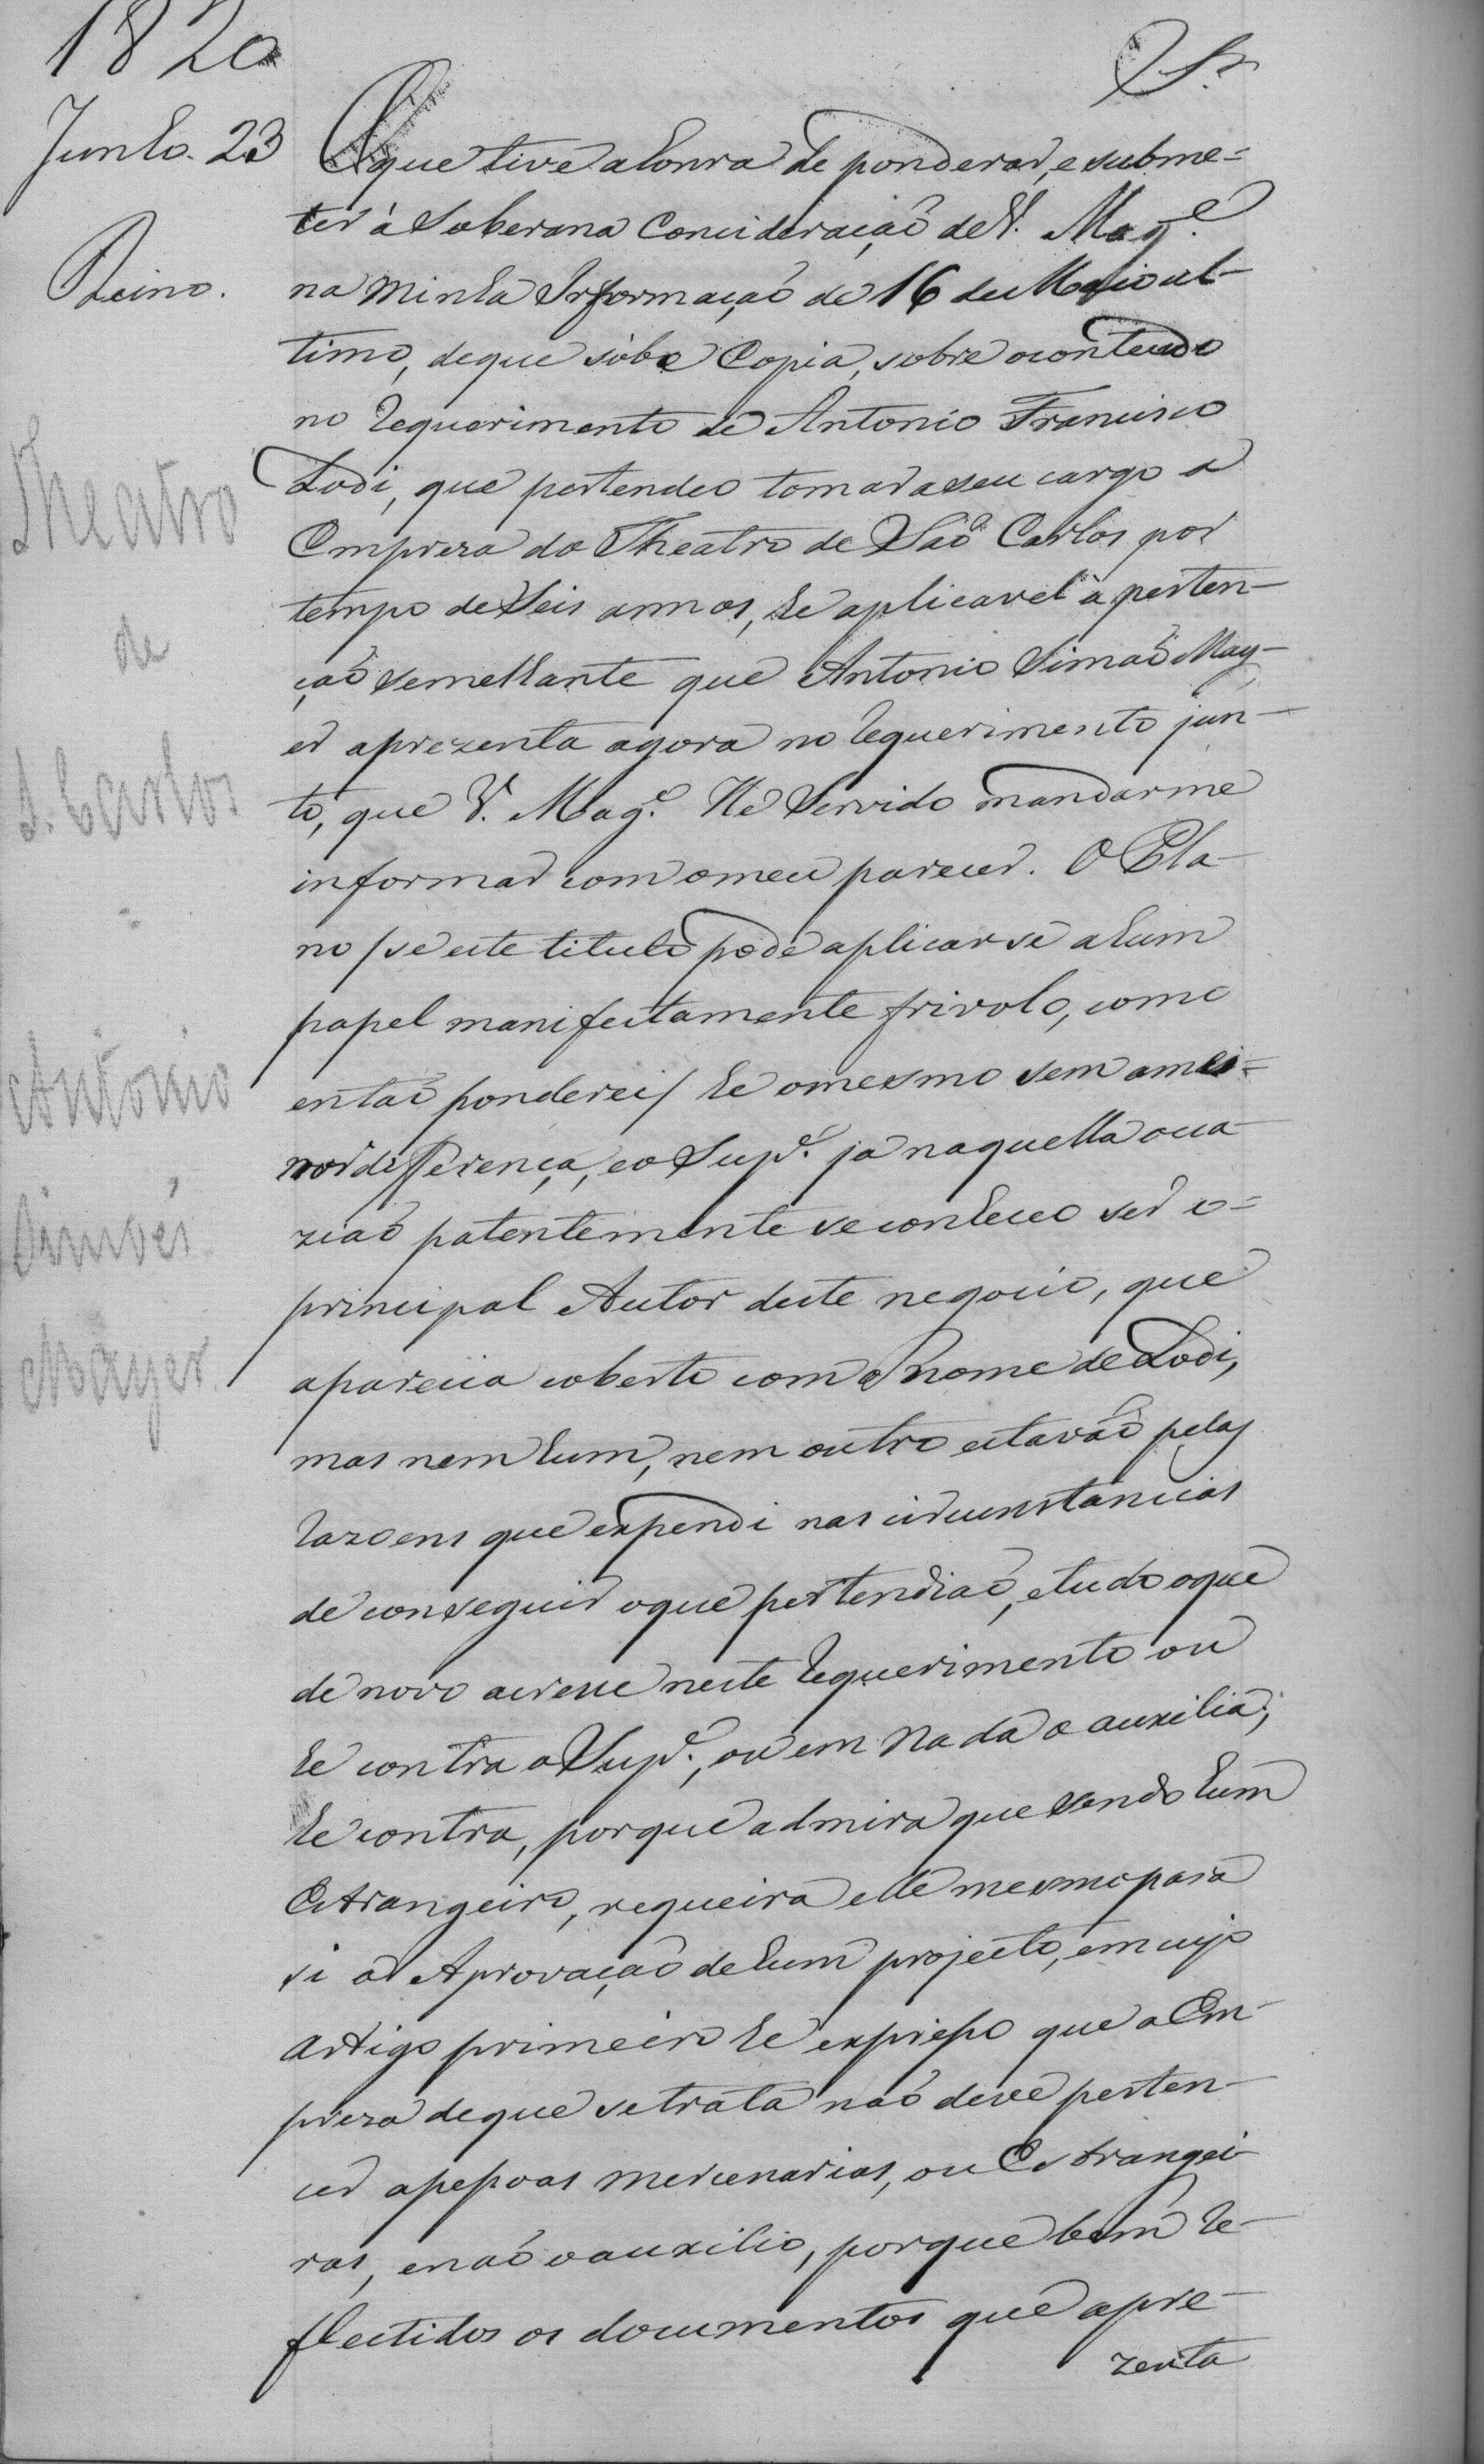 1820
Junho. 23
Reino.
Theatro
de
S. Carlos
Antonio
Simões
Mayer
Sr.
O que tive a honra de ponderar, e subme=
ter á Soberana Concideração de V. Mag.e
na minha Informação de 16 de Maio ul-
timo, de que sóbe Copia, sobre o contendo
no requerimento de Antonio Francisco
Lodi, que pertendeo tomar a seu cargo a
Empreza do Theatro de São Carlos por
tempo de Seis annos, he aplicavel á perten-
ção semelhante que Antonio Simaõ May-
er aprezenta agora no requerimento jun-
to, que V. Mag.e He Servido mandarme
informar com o meu parecer. O Pla-
no / se este titulo póde aplicar se a hum
papel manifestamente frivolo, como
entaõ ponderei / he o mesmo sem a mei=
nor differença, e o Sup.e já naquella occa-
ziaõ patentemente se conheceo ser o=
principal Autor deste negocio, que
aparecia coberto com o nome de Lodi,
mas nem hum, nem outro estavaõ pelas
razoens que expendi nas circunstancias
de conseguir o que pertendiaõ, e tudo o que
de novo acresce neste requerimento ou
he contra o Sup.e, ou em nada o auxilia;
he contra, porque admira que sendo hum
Estrangeiro, requeira elle mesmo para
si a Aprovação de hum projecto, em cujo
artigo primeiro he expreso que a Em-
preza de que se trata naõ deve perten-
cer a pessoas mercenarias, ou Estrangei-
ras, e naõ o auxilio, porque bem re-
flectidos os documentos que apre-
zenta